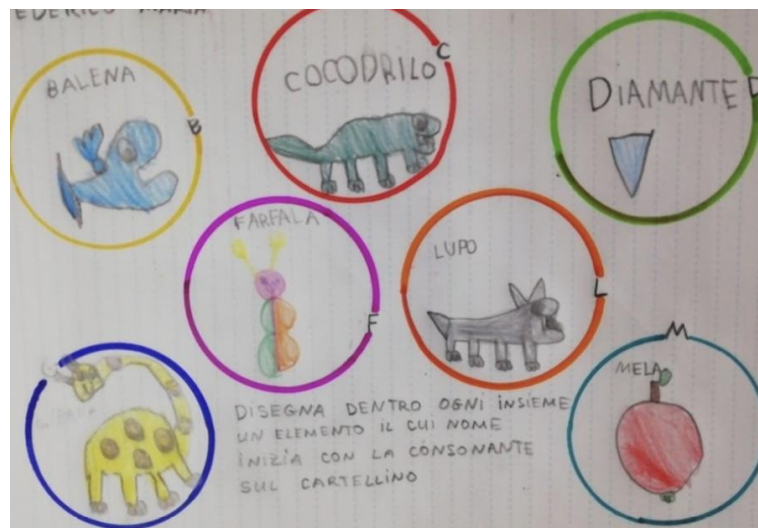 EDERICO MARIA
BALENA
B
COCODRILO
C
DIAMANTE
D
FARFALA
F
LUPO
L
G
MELA
M
DISEGNA DENTRO OGNI INSIEME
UN ELEMENTO IL CUI NOME
INIZIA CON LA CONSONANTE
SUL CARTELLINO